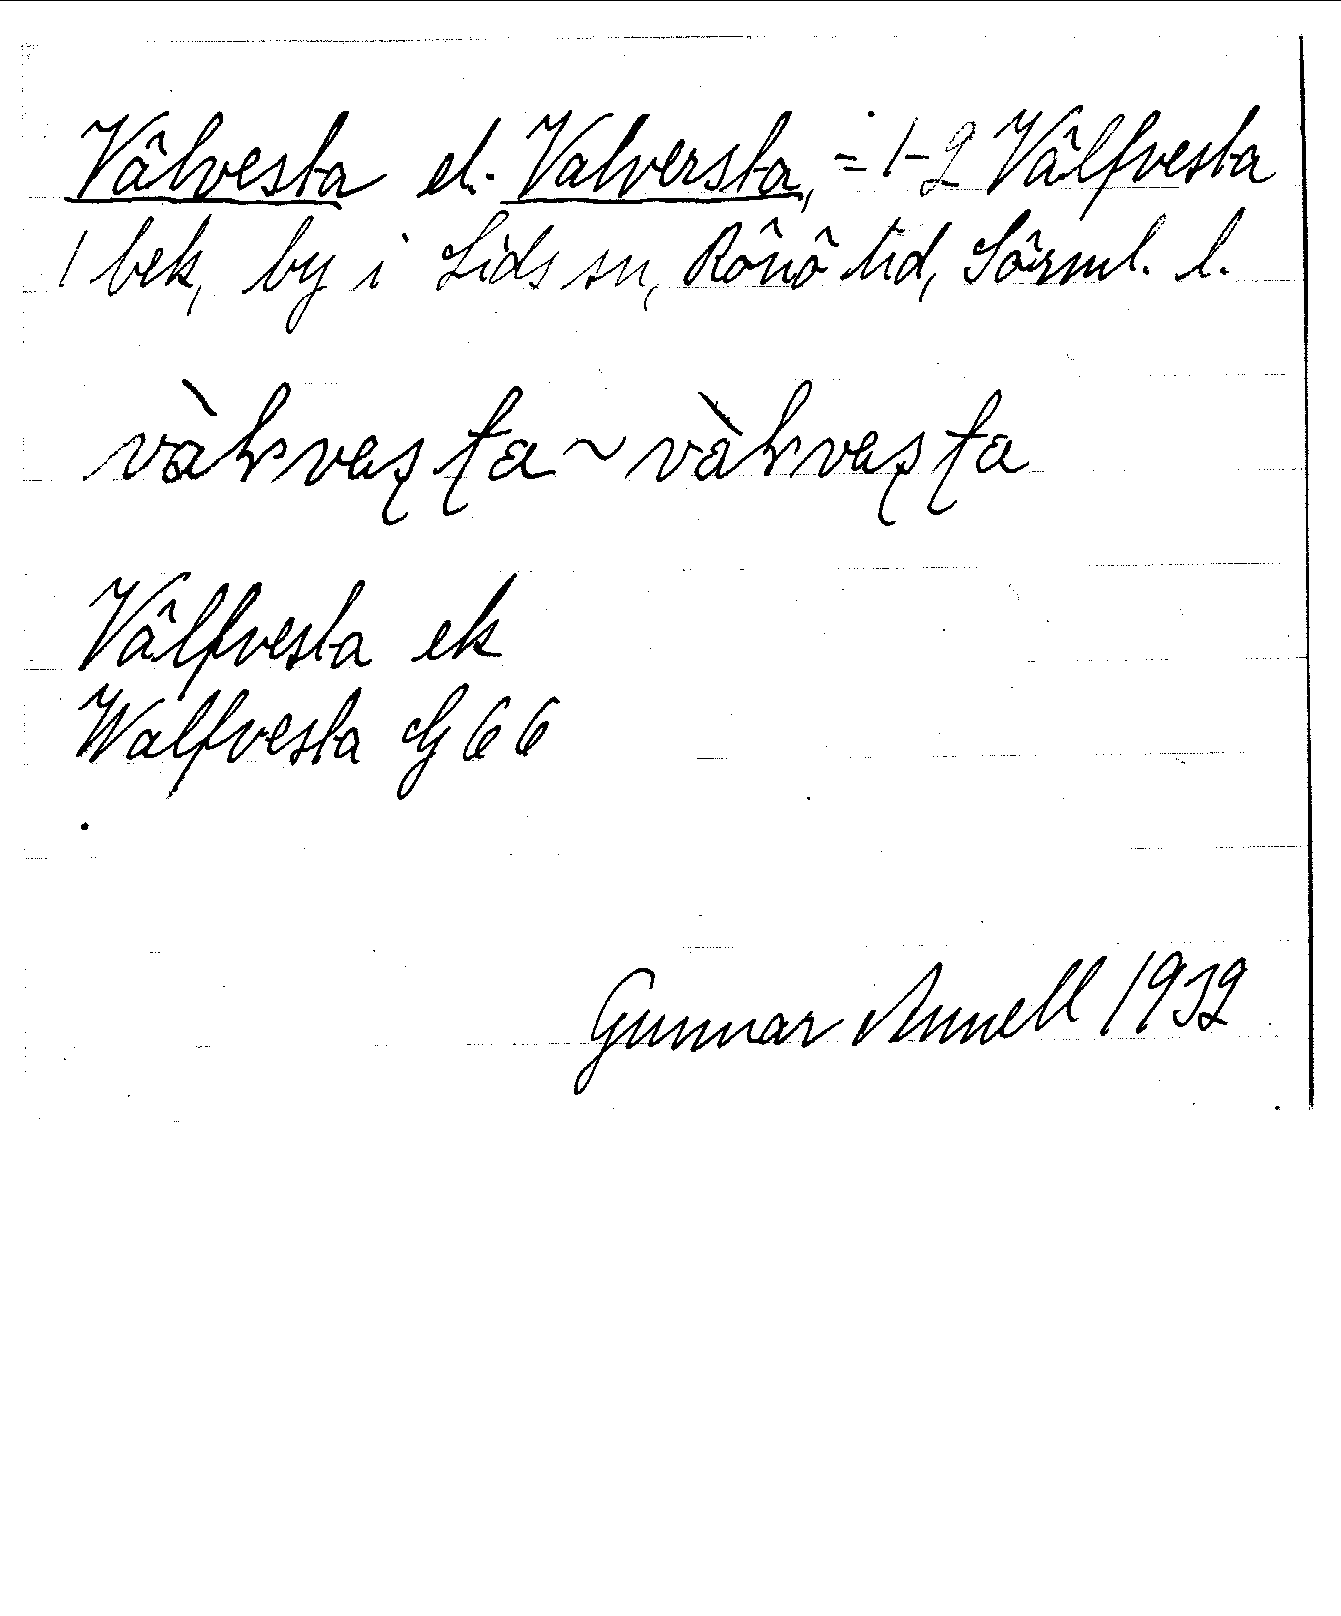 Välvesta el. Valversta, = 1-2 Välfvesta
1 bek, by i Lids sn, Rönö hd, Sörml. l.
vàlvesta ~ vàlvesta
Välfvesta ek
Walfvesta G 66
Gunnar Annell 1932